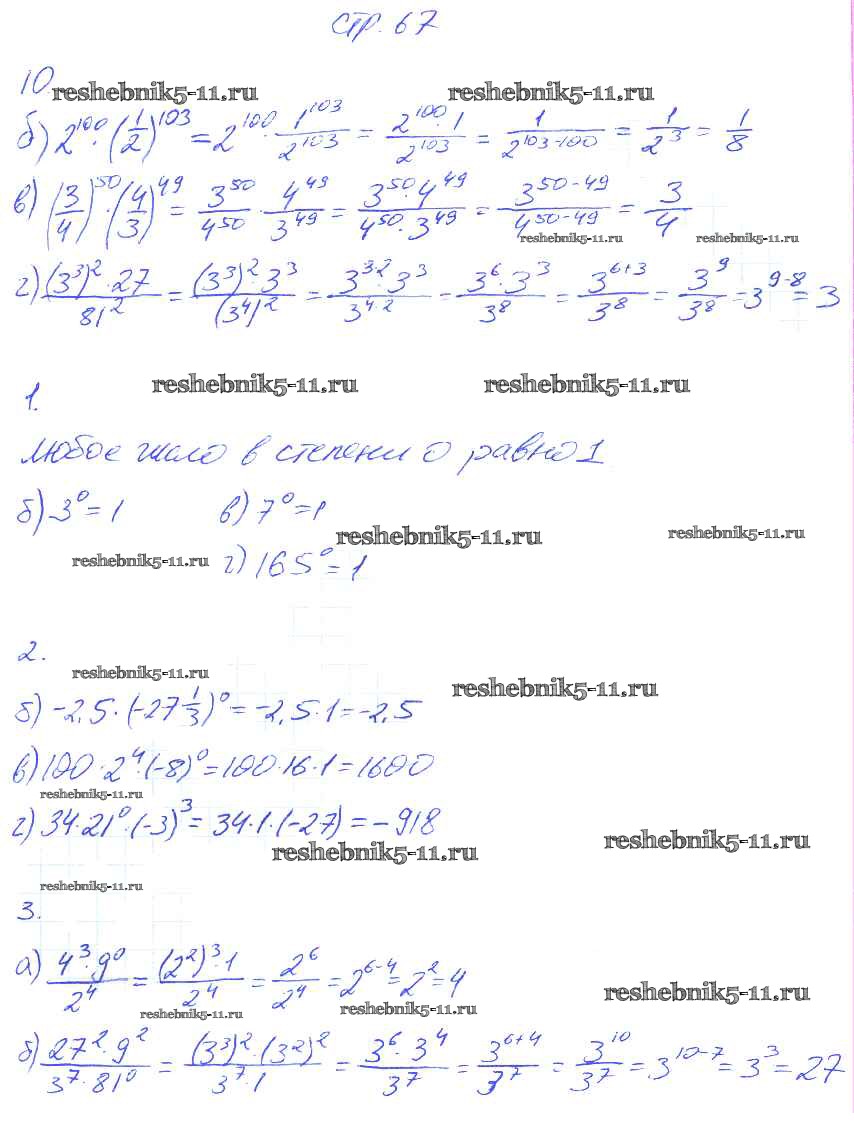 стр. 67
10 reshebnik5-11.ru reshebnik5-11.ru
б) 2^100 · (1/2)^103 = 2^100 · 1^103/2^103 = 2^100 · 1/2^103 = 1/2^(103-100) = 1/2^3 = 1/8
в) (3/4)^50 · (4/3)^49 = 3^50/4^50 · 4^49/3^49 = 3^50 · 4^49/4^50 · 3^49 = 3^(50-49)/4^(50-49) = 3/4
reshebnik5-11.ru reshebnik5-11.ru
г) (3^3)^2 · 27/81^2 = (3^3)^2 · 3^3/(3^4)^2 = 3^(3·2) · 3^3/3^(4·2) = 3^6 · 3^3/3^8 = 3^(6+3)/3^8 = 3^9/3^8 = 3^(9-8) = 3
reshebnik5-11.ru reshebnik5-11.ru
1.
Любое число в степени 0 равно 1
б) 3^0 = 1 в) 7^0 = 1
reshebnik5-11.ru reshebnik5-11.ru
reshebnik5-11.ru г) 165^0 = 1
2.
reshebnik5-11.ru reshebnik5-11.ru
б) -2,5 · (-27 1/3)^0 = -2,5 · 1 = -2,5
в) 100 · 2^4 · (-8)^0 = 100 · 16 · 1 = 1600
reshebnik5-11.ru
г) 34 · 21^0 · (-3)^3 = 34 · 1 · (-27) = -918
reshebnik5-11.ru reshebnik5-11.ru
reshebnik5-11.ru
3.
а) 4^3 · 9^0/2^4 = (2^2)^3 · 1/2^4 = 2^6/2^4 = 2^(6-4) = 2^2 = 4
reshebnik5-11.ru reshebnik5-11.ru reshebnik5-11.ru
б) 27^2 · 9^2/3^7 · 81^0 = (3^3)^2 · (3^2)^2/3^7 · 1 = 3^6 · 3^4/3^7 = 3^(6+4)/3^7 = 3^10/3^7 = 3^(10-7) = 3^3 = 27